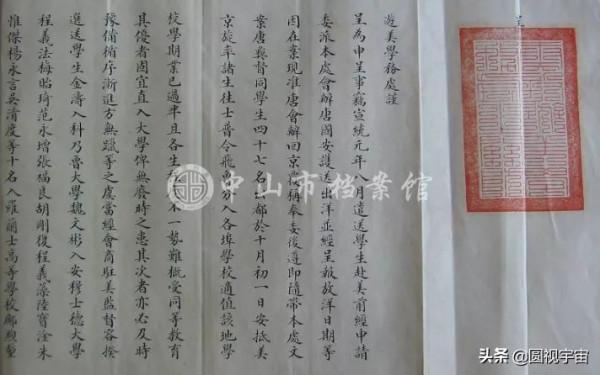 呈
遊美學務處謹
呈為申呈事竊宣統元年八月遣送學生赴美前經申請
委派本處會辦唐國安護送出洋並經呈報放洋日期等
因在案現准唐會辦回京聲稱奉委後遵即隨帶本處文
案唐彝督同學生四十七名出都於十月初一日安抵美
京旋率諸生往士普令飛爾分入各埠學校適值該地學
校學期業已過半且各生程度不一勢難概受同等教育
其優者固宜直入大學俾無廢時之患其次者亦必及時
豫備循序漸進方無躐等之虞當經會商駐美監督容揆
選送學生金濤入科乃魯大學魏文彬入安穆士德大學
程義法梅貽琦范永增張福良胡剛復程義藻陸寶淦朱
惟傑楊永言吳清度等十名入羅蘭士高等學校鄺煦堃
中山市档案馆
头条 @圆视宇宙